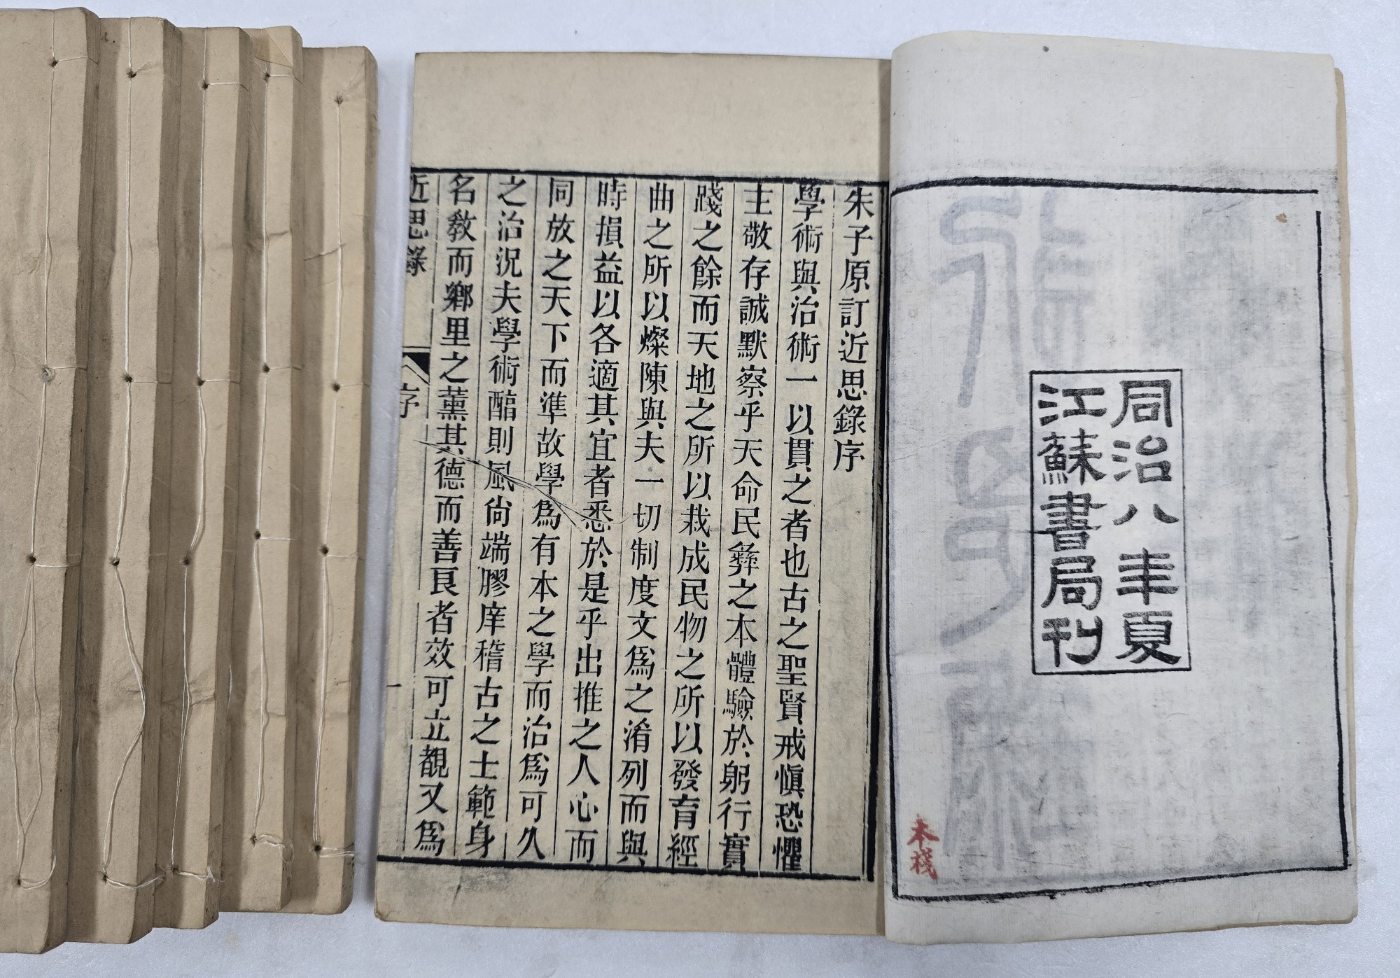 同治八年夏
江蘇書局刊
朱子原訂近思錄序
學術與治術一以貫之者也古之聖賢戒愼恐懼
主敬存誠默察乎天命民彝之本體驗於躬行實
踐之餘而天地之所以栽成民物之所以發育經
曲之所以燦陳與夫一切制度文爲之淆列而與
時損益以各適其宜者悉於是乎出推之人心而
同放之天下而準故學爲有本之學而治爲可久
之治況夫學術醕則風尙端膠庠稽古之士範身
名敎而鄕里之薰其德而善良者效可立覩又爲
近思錄
序
一